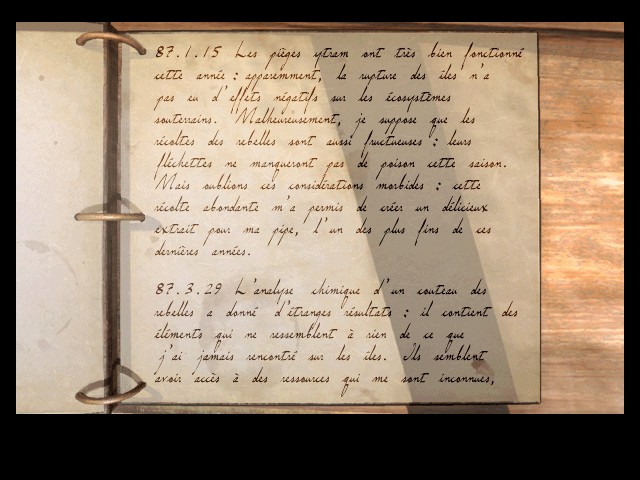 87.1.15 Les pièges ytram ont très bien fonctionné
cette année : apparemment, la rupture des îles n'a
pas eu d'effets négatifs sur les écosystèmes
souterrains. Malheureusement, je suppose que les
récoltes des rebelles sont aussi fructueuses : leurs
fléchettes ne manqueront pas de poison cette saison.
Mais oublions ces considérations morbides : cette
récolte abondante m'a permis de créer un délicieux
extrait pour ma pipe, l'un des plus fins de ces
dernières années.
87.3.29 L'analyse chimique d'un couteau des
rebelles a donné d'étranges résultats : il contient des
éléments qui ne ressemblent à rien de ce que
j'ai jamais rencontré sur les îles. Ils semblent
avoir accès à des ressources qui me sont inconnues,